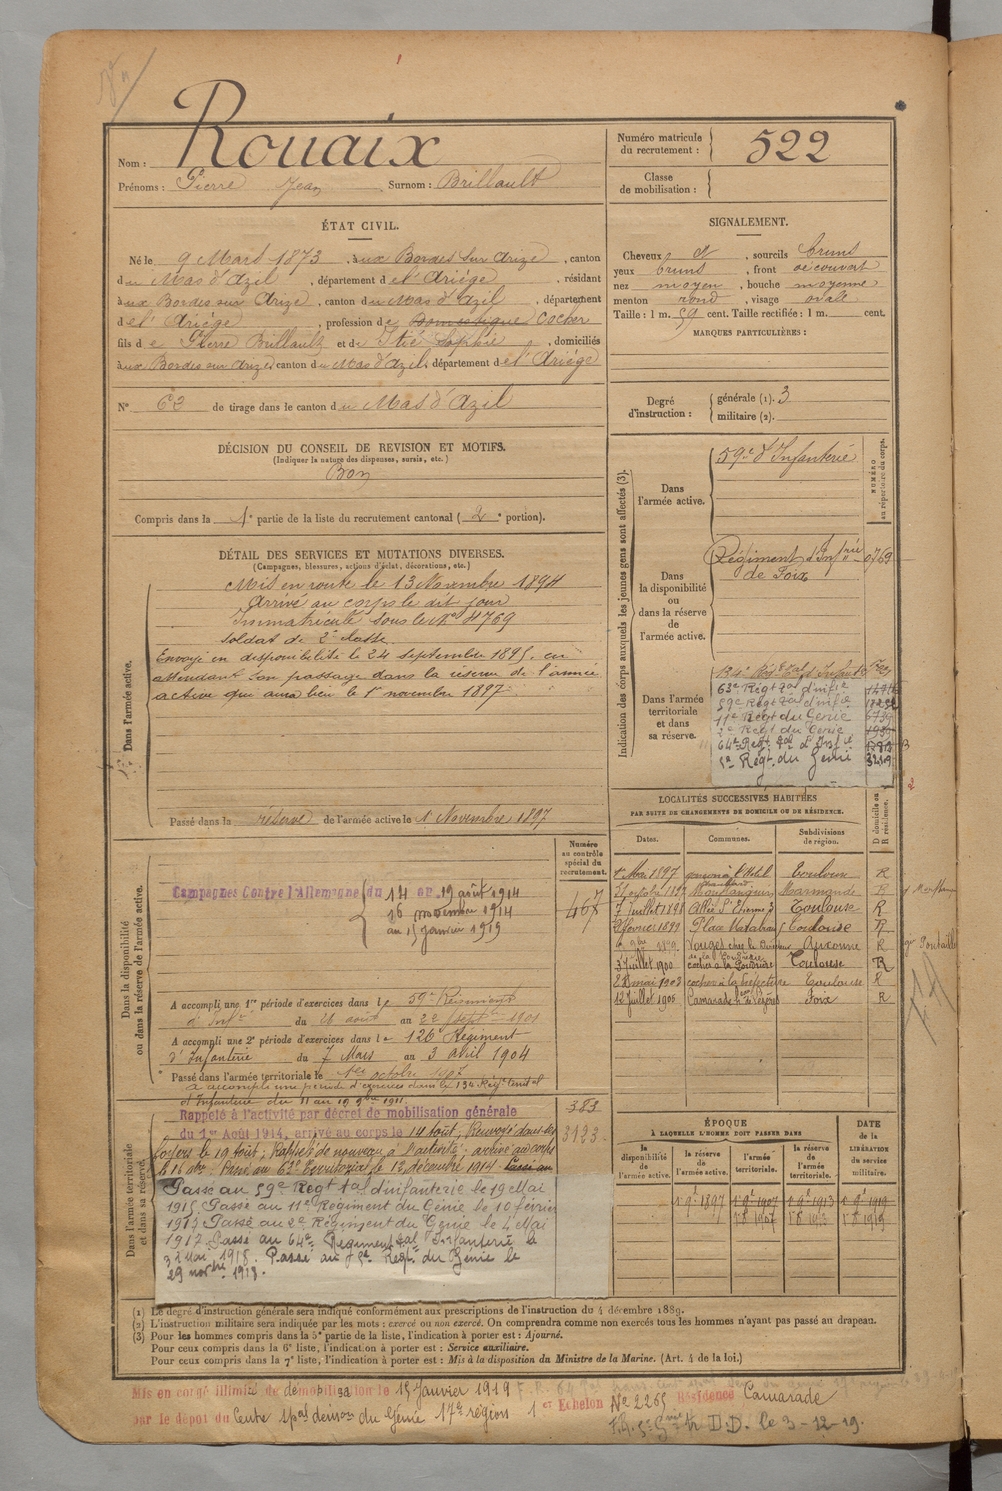 Nom : Rouaix
Prénoms : Pierre Jean Surnom : Brillault
Numéro matricule du recrutement : 522
Classe de mobilisation :
ÉTAT CIVIL.
Né le 9 Mars 1873, aux Bordes sur Arize, canton
du Mas d'Azil, département de l'Ariége, résidant
aux Bordes sur Arize, canton du Mas d'Azil, département
de l'Ariége, profession de Domestique Cocher
fils de Pierre Brillault et de Itié Sophie, domiciliés
aux Bordes sur Arize, canton du Mas d'Azil, département de l'Ariége
N° 62 de tirage dans le canton du Mas d'Azil
SIGNALEMENT.
Cheveux et, sourcils bruns
yeux bruns, front découvert
nez moyen, bouche moyenne
menton rond, visage ovale
Taille : 1 m. 59 cent. Taille rectifiée : 1 m. cent.
MARQUES PARTICULIÈRES :
Degré d'instruction : générale (1). 3
militaire (2).
DÉCISION DU CONSEIL DE REVISION ET MOTIFS.
(Indiquer la nature des dispenses, sursis, etc.)
Bon
Compris dans la 1re partie de la liste du recrutement cantonal (2e portion).
DÉTAIL DES SERVICES ET MUTATIONS DIVERSES.
(Campagnes, blessures, actions d'éclat, décorations, etc.)
Dans l'armée active.
Mis en route le 13 Novembre 1894
Arrivé au corps le dit jour
Immatriculé sous le N° 4769
Soldat de 2e classe
Envoyé en disponibilité le 24 septembre 1895, en
attendant son passage dans la réserve de l'armée
active qui aura lieu le 1er novembre 1897
Passé dans la réserve de l'armée active le 1 Novembre 1897
Indication des corps auxquels les jeunes gens sont affectés (3).
NUMÉRO au répertoire du corps.
Dans l'armée active.
59e d'Infanterie
Dans la disponibilité ou dans la réserve de l'armée active.
Régiment d'Infrie 0769
de Foix
Dans l'armée territoriale et dans sa réserve.
134e Régt tal d'Infant
63e Régt tal d'infie
59e Régt tal d'infie
11e Régt du Génie 6739
2e Régt du Génie 1939
64e Regt tal d'Infie
5e Régt du Génie
LOCALITÉS SUCCESSIVES HABITÉES
PAR SUITE DE CHANGEMENTS DE DOMICILE OU DE RÉSIDENCE.
Dates. Communes. Subdivisions de région. D domicile ou R résidence.
1er Mai 1897 Toulouse R
21 octobre 1897 Marmande R
7 Juillet 1898 Allée St Etienne 3 Toulouse R
février 1899 Place Mage Toulouse R
9bre 1899 R
3 Juillet 1900 cocher à la Poudrerie Toulouse R
28 mai 1903 cocher à la Préfecture Toulouse R
12 Juillet 1905 Camarade Foix R
Dans la disponibilité ou dans la réserve de l'armée active.
Numéro au contrôle spécial du recrutement.
467
Campagnes Contre l'Allemagne du 14 au 19 août 1914
16 novembre 1914
au 15 janvier 1919
A accompli une 1re période d'exercices dans le 59e Régiment
d'Infie du 21 août au 22 septbre 1901
A accompli une 2e période d'exercices dans le 126e Régiment
d'Infanterie du 7 Mars au 3 avril 1904
Passé dans l'armée territoriale le 1er octobre 1907
a accompli une période d'exercices dans le 134 Régt territal
d'Infanterie du 11 au 19 9bre 1911
Dans l'armée territoriale et dans sa réserve.
383
3123
Rappelé à l'activité par décret de mobilisation générale
du 1er Août 1914, arrivé au corps le 14 août, Renvoyé dans ses
foyers le 19 août, Rappelé de nouveau à l'activité, arrivé au corps
le 16 9bre. Passé au 63e Territorial le 12 décembre 1914. Passé au
Passé au 59e Régt tal d'infanterie le 19 Mai
1915. Passé au 11e Régiment du Génie le 10 février
1917 Passé au 2e Régiment du Génie le 4 Mai
1917. Passé au 64e Régiment tal Infanterie le
31 Mai 1918. Passé au 5e Régt du Génie le
29 novbre 1918.
ÉPOQUE
À LAQUELLE L'HOMME DOIT PASSER DANS
la disponibilité de l'armée active. la réserve de l'armée active. l'armée territoriale. la réserve de l'armée territoriale.
DATE de la LIBÉRATION du service militaire.
1 9e 1897 1 9e 1907 1 9e 1913 1 9e 1919
(1) Le degré d'instruction générale sera indiqué conformément aux prescriptions de l'instruction du 4 décembre 1889.
(2) L'instruction militaire sera indiquée par les mots : exercé ou non exercé. On comprendra comme non exercés tous les hommes n'ayant pas passé au drapeau.
(3) Pour les hommes compris dans la 5e partie de la liste, l'indication à porter est : Ajourné.
Pour ceux compris dans la 6e liste, l'indication à porter est : Service auxiliaire.
Pour ceux compris dans la 7e liste, l'indication à porter est : Mis à la disposition du Ministre de la Marine. (Art. 4 de la loi.)
Mis en congé illimité de démobilisa le 15 Janvier 1919
par le dépôt du Centre de démon du Génie 17e région 1er Echelon N° 2265 Résidence Camarade
D.D. le 3-12-19.